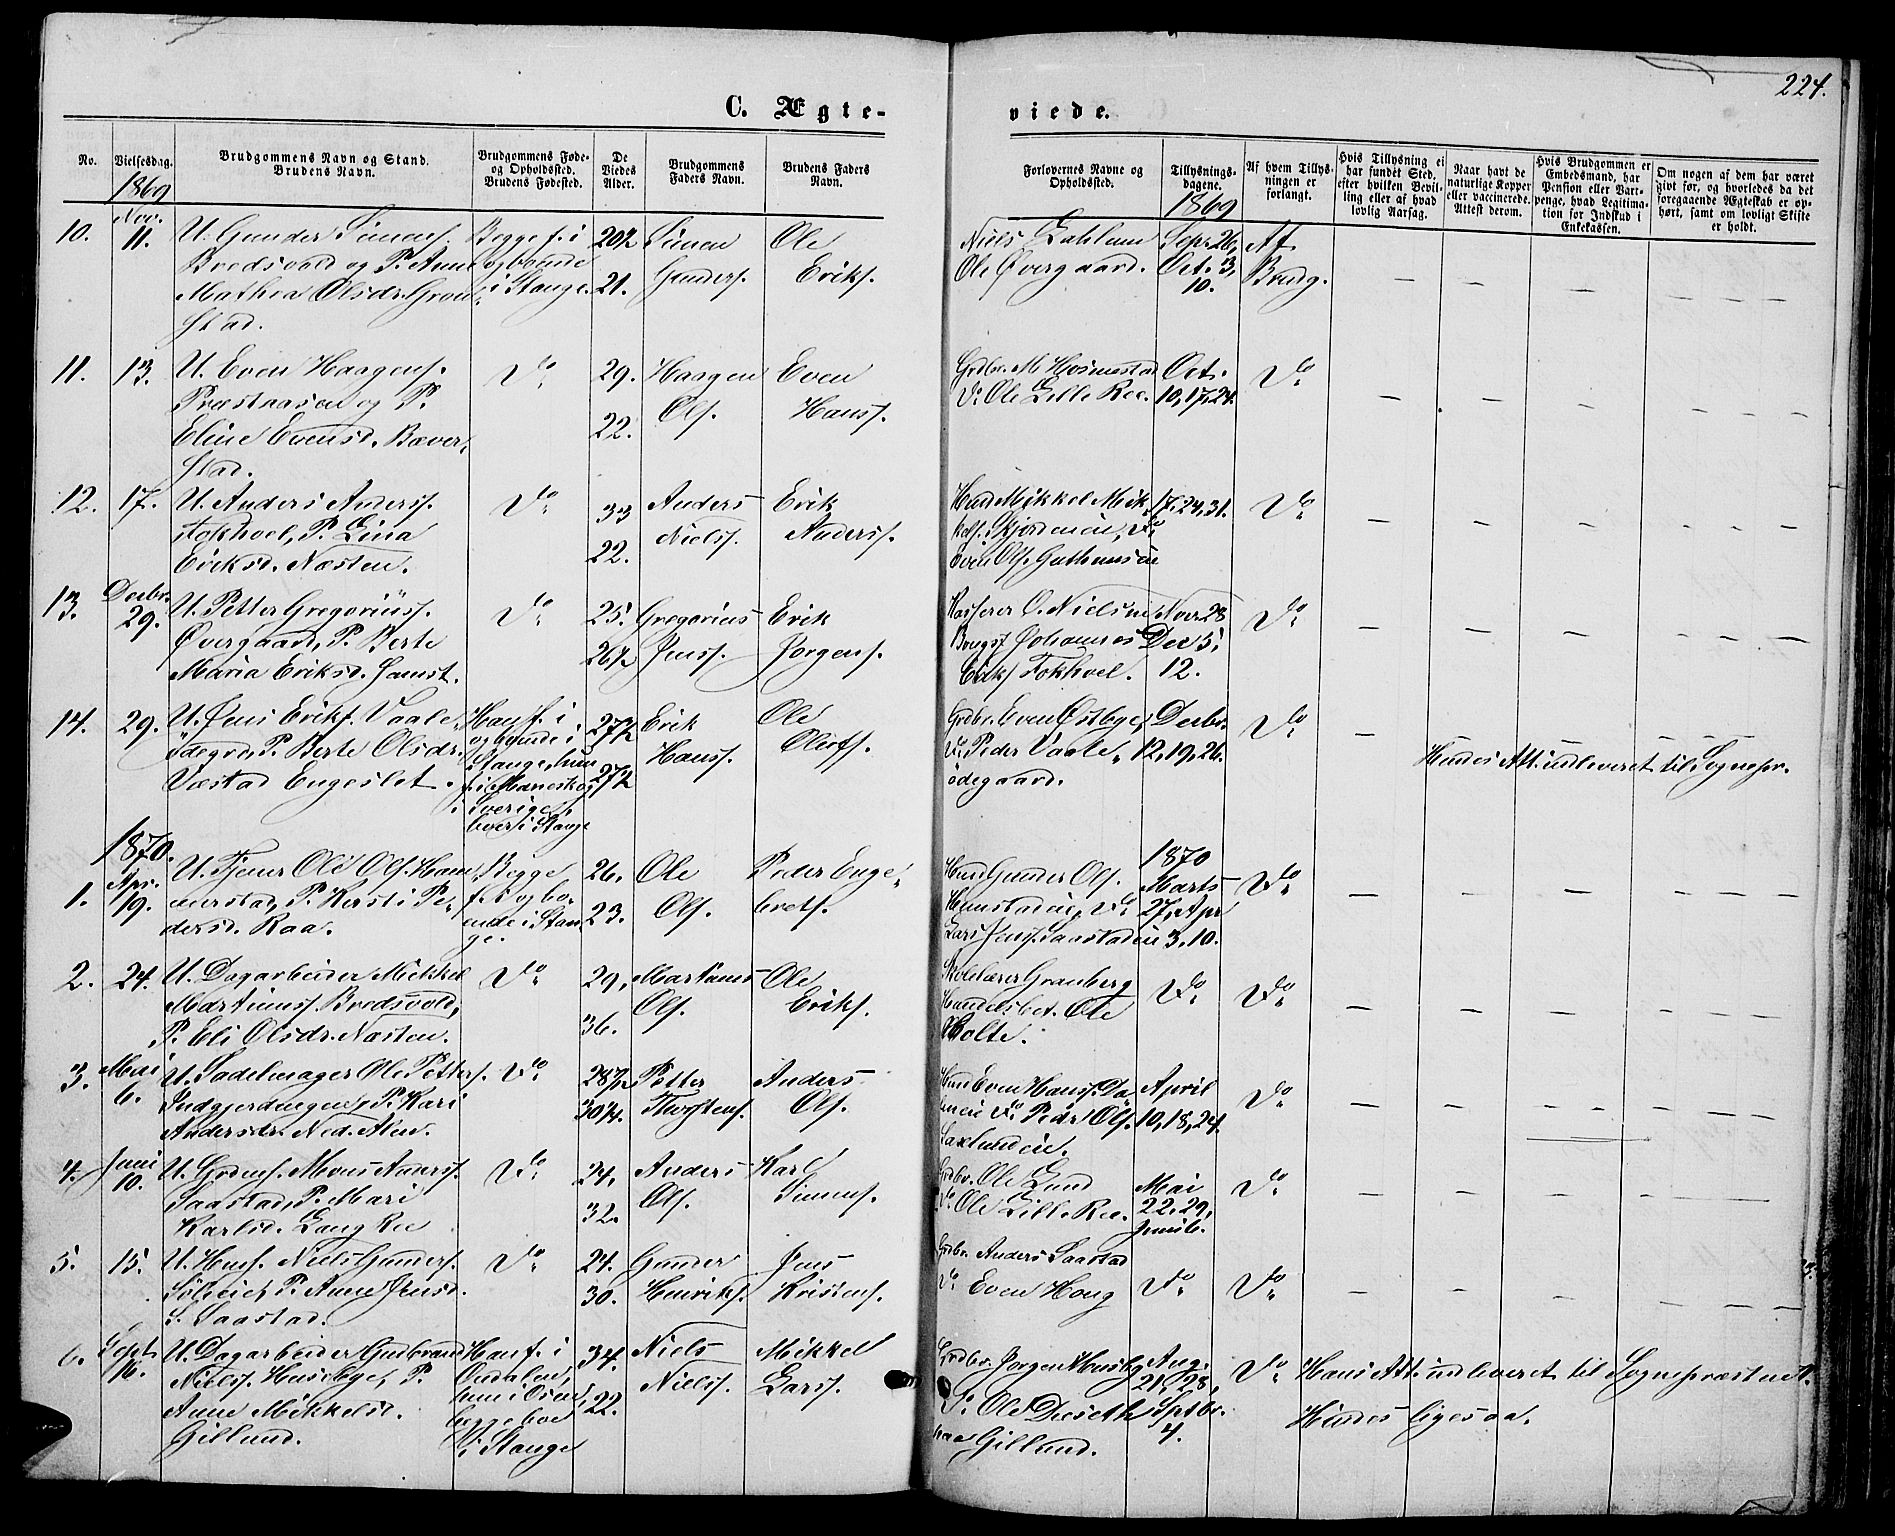 224.
C. Ægte-
viede.
No.
Vielsesdag.
1869
Brudgommens Navn og Stand.
Brudens Navn.
Brudgommens Føde-
og Opholdssted.
Brudens Fødested.
De
Viedes
Alder.
Brudgommens
Faders Navn.
Brudens Faders
Navn.
Forlovernes Navne og
Opholdssted.
Tillysnings-
dagene.
1869
Af hvem Tillys-
ningen er
forlangt.
Hvis Tillysning ei
har fundet Sted,
efter hvilken Bevil-
ling eller af hvad
lovlig Aarsag.
Naar havt de
naturlige Kopper
eller vaccinerede.
Attest derom.
Hvis Brudgommen er
Embedsmand, har
Pension eller Vart-
penge, hvad Legitima-
tion for Indskud i
Enkekassen.
Om nogen af dem har været
gift før, og hvorledes da det
foregaaende Ægteskab er op-
hørt, samt om lovligt Skifte
er holdt.
10.
Nov.
11.
U. Gunder Simens.
Bredsvold og P. Anne
Mathea Olsdr. Gron-
stad.
Begge f. i
og boende
i Stange.
20½
21.
Simen
Gunders.
Ole
Eriks.
Niels
Ole Øvergaard.
Sepr. 26,
Oct. 3,
10.
Af
Brudg.
11.
13.
U. Even Haagens.
Præstaasen og P.
Eline Evensd. Bæver-
stad.
Do
29.
22.
Haagen
Ols.
Even
Hans.
Grdbr. M. Hosmestad
Do Ole Lille Ree.
Oct.
10, 17, 24.
Do
12.
17.
U. Anders Anders.
Tokhoel, P. Lina
Eriksd. Næsten.
Do
33
22.
Anders
Niels.
Erik
Anders.
Husmd Mikkel Mik-
kels.
Even Ols.
17, 24, 31.
Do
13.
Decbr.
29.
U. Petter Gregorius.
Øvergaard, P. Berte
Maria Eriksd. Hamst.
Do
25.
26½
Gregorius
Jens.
Erik
Jørgens.
O. Nielsen
Johannes
Eriks. Tokhoel.
Novr 28
Dec 5,
12.
Do
14.
29.
U. Jens Eriks. Vaale-
ødegrd, P. Berte Olsdr.
Væstad Engeslet.
Han f. i
og boende i
Stange, hun
f. i
Sverige,
boer i Stange
27½
27½
Erik
Hans.
Ole
Olofs.
Grdbr. Even Østbye,
Do Peder Vaale-
ødegaard.
Decbr.
12, 19, 26.
Do
Hendes Att. udleveret til Sognepr.
1870.
1.
Apr.
19.
U. Tjener Ole Ols. Ham-
merstad, P. Kersti Pe-
dersd. Raa.
Begge
f. i og bo-
ende i Stan-
ge.
26.
23.
Ole
Ols.
Peder Enge-
brets.
Husmd Gunder Ols.
Do
Lars Jens. Saastadeie
1870
Marts
27, Apr
3, 10.
Do
2.
24.
U. Dagarbeider Mikkel
Martinus. Bredsvold,
P. Eli Olsdr. Næsten.
Do
29,
36.
Martinus
Ols.
Ole
Eriks.
Skolelærer Granberg
Handelsbet. Ole
Holte.
Do
Do
3.
Mai
6.
U. Sadelmager Ole Petters.
Indgjerdingen, P. Kari
Andersdr. Ned. Alm.
Do
28½
30¼
Petter
Thorstens.
Anders
Ols.
Husmd Even Hans.
Do Peder Ols.
April
10, 18, 24.
Do
4.
Juni
10.
U. Grdms. Mons Anders.
Saastad, P. Mari
Karlsd. Lang Ree
Do
24,
32.
Anders
Ols.
Karl
Simens.
Grdbr. Ole Lund
Do Ole Lille Ree.
Mai
22, 29,
Juni 6.
Do
5.
15.
U. Husm. Niels Gunders.
Solieiet, P. Anne Jensd.
S. Saastad.
Do
24.
30.
Gunder
Henriks.
Jens
Kristens.
Grdbr. Anders Saastad
Do Even Hong
Do
Do
6.
Sept.
16.
U. Dagarbeider Gudbrand
Niels. Husebye, P.
Anne Mikkelsd.
Gillund.
Han f. i
Ondalen,
hun i Osen,
begge boe
i Stange
34.
22.
Niels
Niels.
Mikkel
Lars.
Grdbr. Jørgen Huseby
Do Ole Deseth
paa Gillund.
Aug.
21, 28,
Septbr.
4.
Do
Hans Att. udleveret til Sognepræstnet.
Hendes ligesaa.